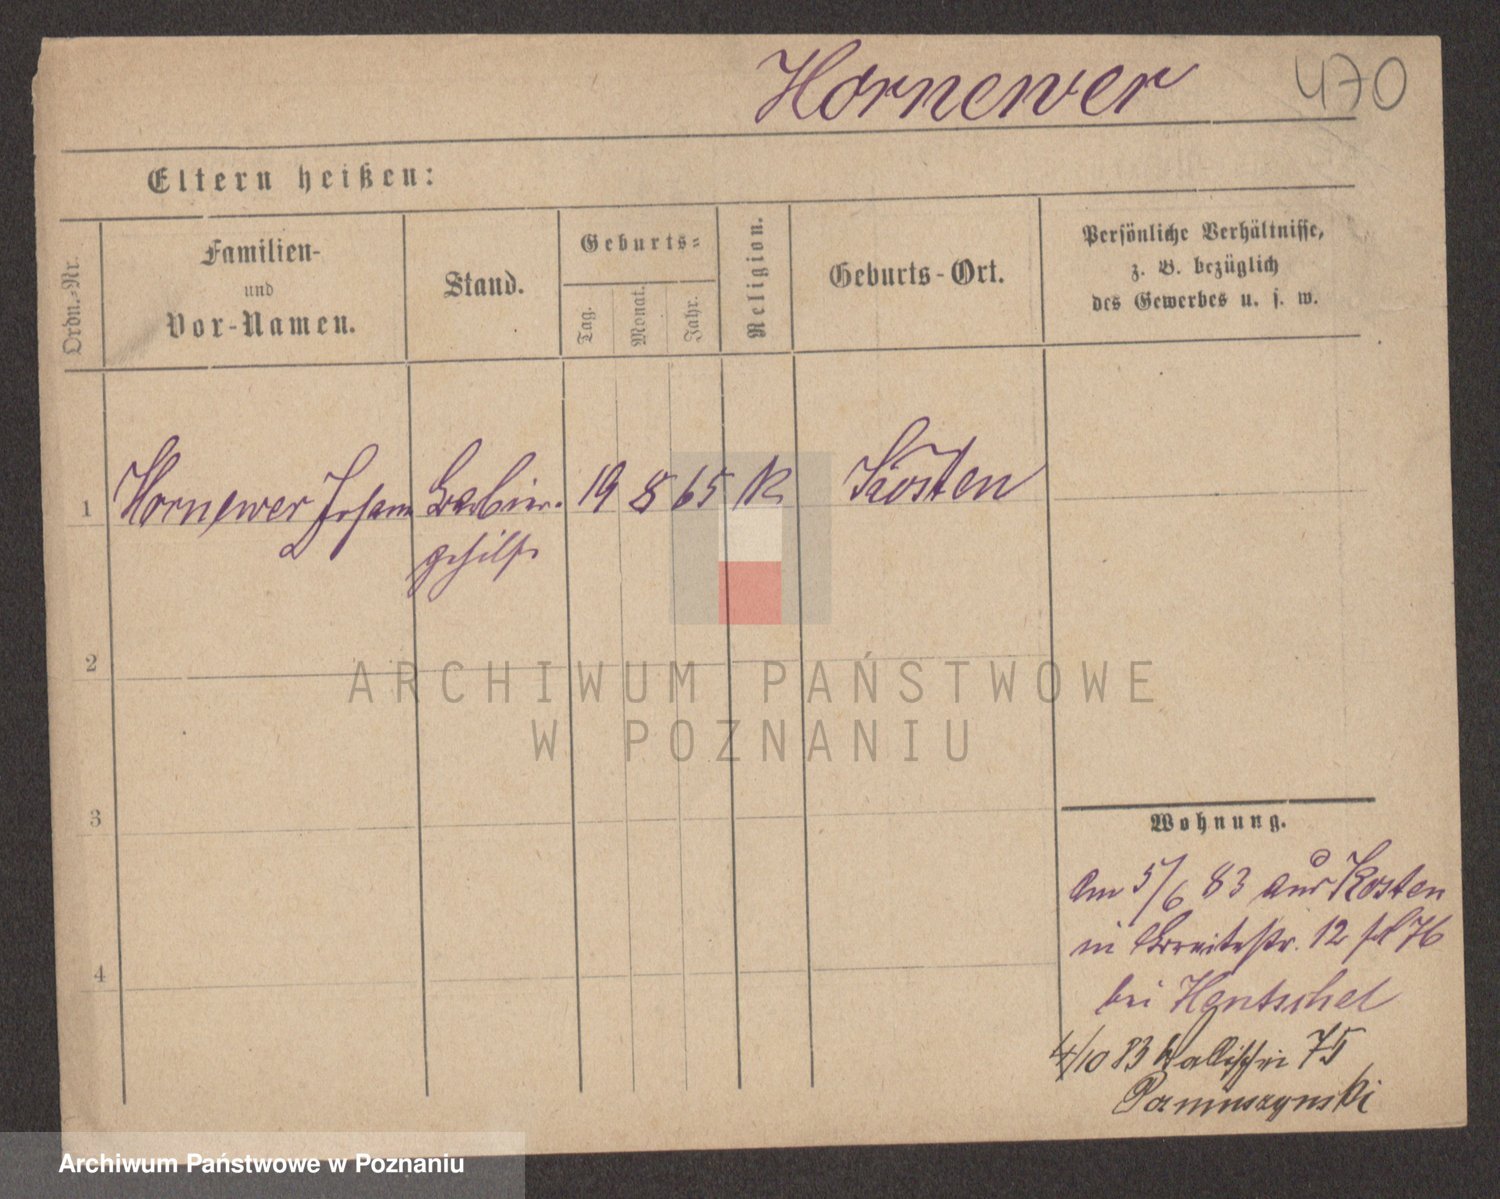 Hornewer 470
Eltern heißen:
Ordn.-Nr.
Familien-
und
Vor-Namen.
Stand.
Geburts-
Tag.
Monat.
Jahr.
Religion.
Geburts-Ort.
Persönliche Verhältnisse,
z. B. bezüglich
des Gewerbes u. s. w.
1 Hornewer Johann Barbier- 19 8 65 K Kosten
gehilfe
2
3
4
ARCHIWUM PAŃSTWOWE
W POZNANIU
Wohnung.
Am 5/6 83 aus Kosten
in Breitestr. 12
bei Hentschel
4/10 83 Wallischei 75
Archiwum Państwowe w Poznaniu